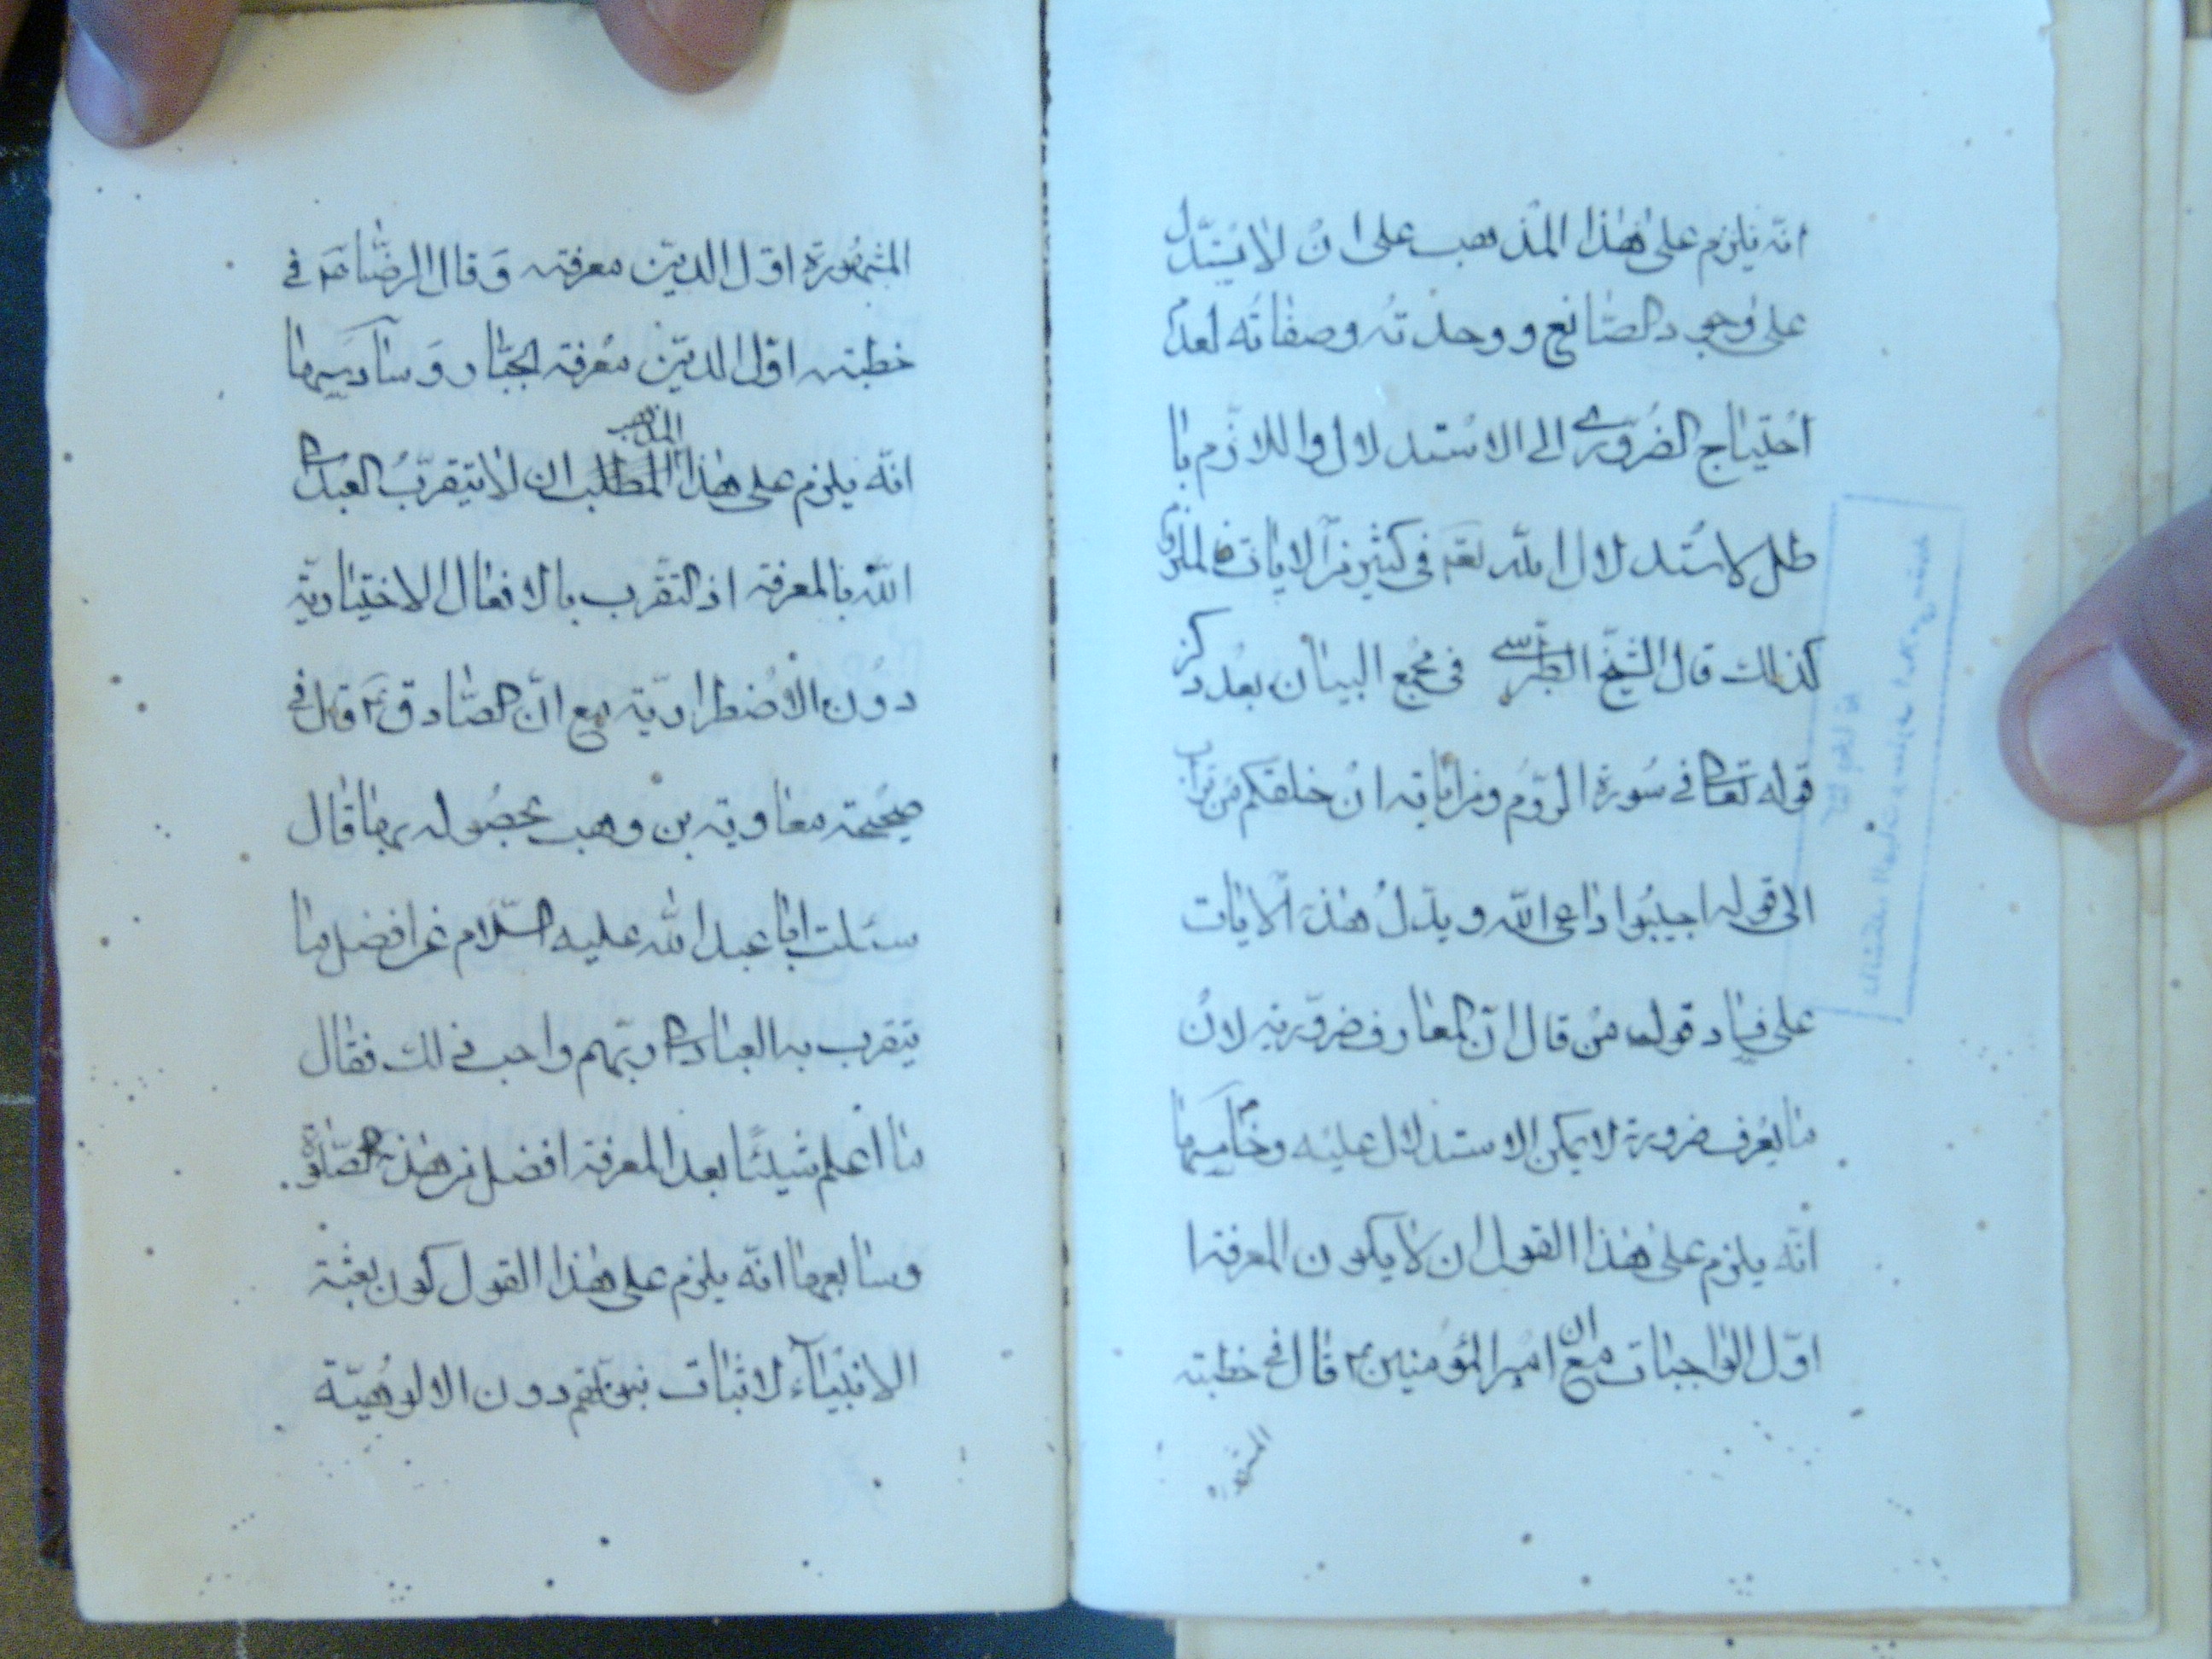 انّه يلزم على هٰذا المذهب على ان لا يستدلّ
على وجود الصّانع و وحدته وصفاته لعدم
احتياج الضّروري الى الاستدلال واللازم با
طل لاستدلال الله تعه في كثير من الايات فالملزوم
كذلك قال الشيخ الطبرسي في مجمع البيان بعد ذكر
قوله تعالى في سورة الرّوم ومن اياته ان خلقكم من تراب
الى قوله اجيبوا داعى الله ويدلّ هذه الايات
على فساد قول من قال انّ المعارف ضروريّة لانّ
ما يعرف ضرورة لا يمكن الاستدلال عليه وخامسها
انّه يلزم على هٰذا القول ان لا يكون المعرفة ا
اوّل الواجبات مع ان امير المؤمنين ۴ قال فى خطبته
المشهورة
المشهورة اوّل الدين معرفته وقال الرضا عم في
خطبته اوّل الدين معرفة الجبّار وسادسها
انّه يلزم على هذا المطلب المذهب ان لا يتقرّب العبد الى
الله بالمعرفة اذ التقرب بالافعال الاختياريّة
دون الاضطراريّة مع انّ الصّادق ۴ قال فى
صحيحة معاوية بن وهب بحصوله بها قال
سئلت ابا عبد الله عليه السّلام عن افضل ما
يتقرب به العباد الى ربّهم واحب ذلك فقال
ما اعلم شيئًا بعد المعرفة افضل من هذه الصّلوة
وسابعها انّه يلزم على هٰذا القول كون بعثة
الانبياء لاثبات نبوّتهم دون الالوهيّة